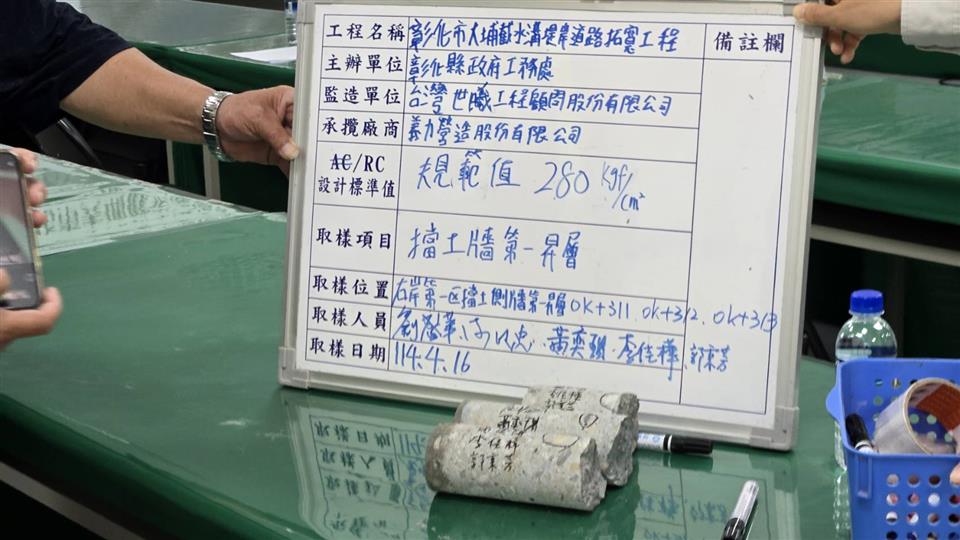 工程名稱 彰化市大埔截水溝堤岸道路拓寬工程 備註欄
主辦單位 彰化縣政府工務處
監造單位 台灣世曦工程顧問股份有限公司
承攬廠商 義力營造股份有限公司
AC/RC 設計標準值 規範值 280 kgf/cm²
取樣項目 擋土牆第一昇層
取樣位置 右岸第一區擋土側牆第一昇層 0k+311、0k+312、0k+313
取樣人員 李佳樺、郭東芳
取樣日期 114.4.16
李佳樺
郭東芳